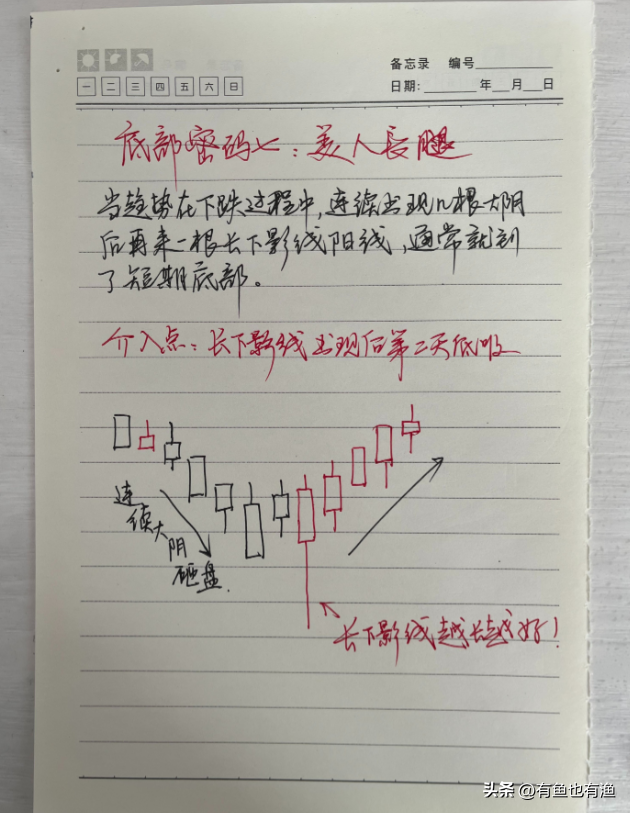 备忘录 编号
一 二 三 四 五 六 日
日期: 年 月 日
底部密码七：美人长腿
当趋势在下跌过程中，连续出现n根大阴
后再来一根长下影线阳线，通常就到
了短期底部。
介入点：长下影线出现后第二天低吸
连续大阴砸盘
长下影线越长越好！
头条 @有鱼也有渔